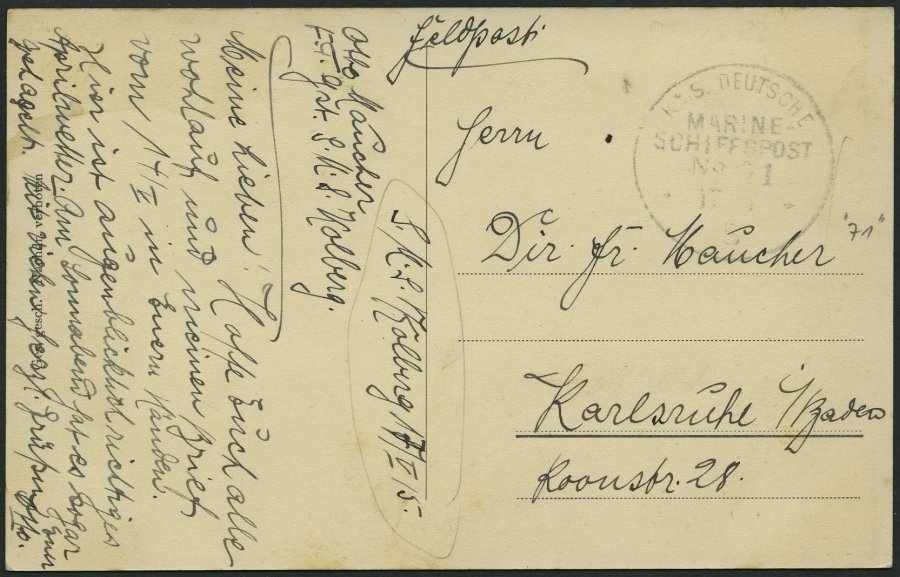 Feldpost
K. D. S. DEUTSCHE
MARINE-
SCHIFFSPOST
No 71
"71"
Herrn
Dir. Fr. Maucher
Karlsruhe i/Baden
Roonstr. 28.
S.M.S. Kolberg 17/V 15.
Otto Maucher
S.M.S. Kolberg.
Meine Lieben! Hoffe Euch alle
wohlauf und meinen Brief
vom 14/V in Euern Händen.
Hier ist augenblicklich richtiges
Aprilwetter. Am Sonnabend hat es sogar
gehagelt. Mit vielen herzl. Grüßen Euer
Otto.